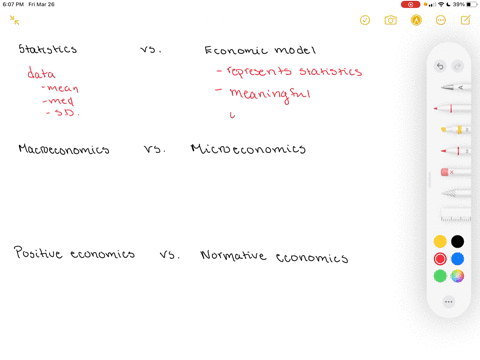 6:07 PM Fri Mar 26
39%
Statistics vs. Economic model
data
- mean
- med
- SD.
- represents statistics
- meaningful
Macroeconomics vs. Microeconomics
Positive economics vs. Normative economics